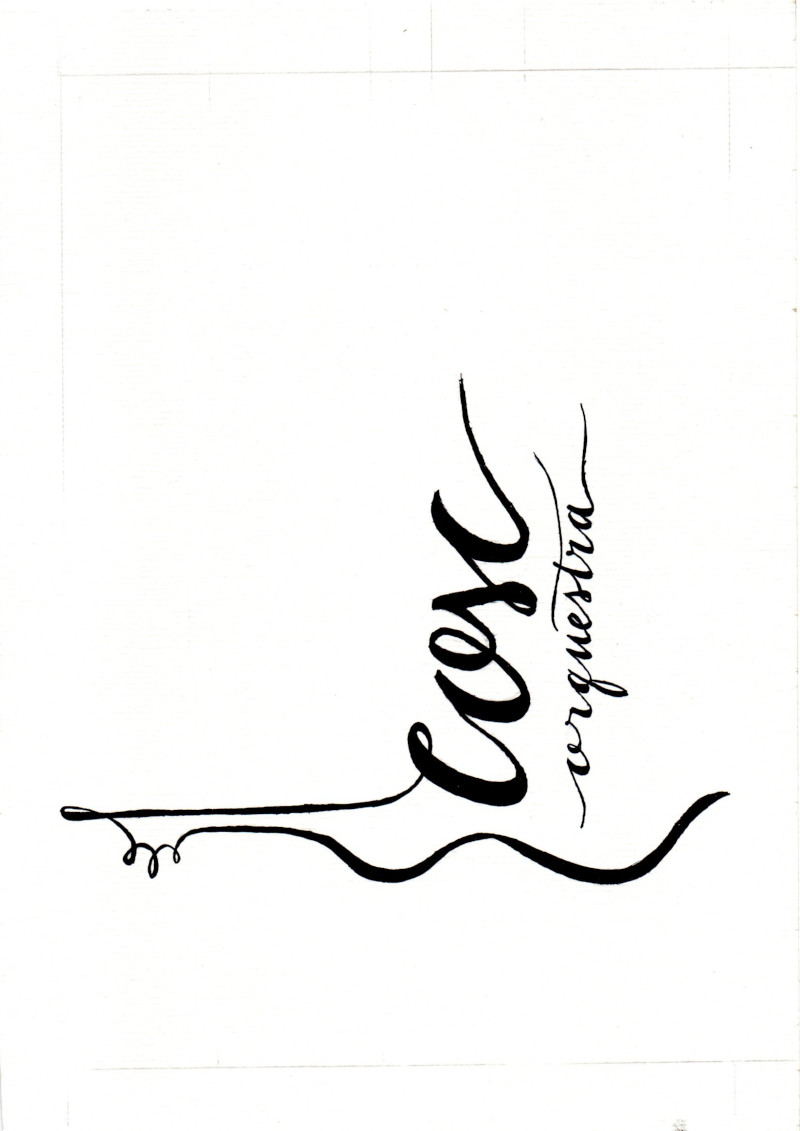 Cosc
orquestra